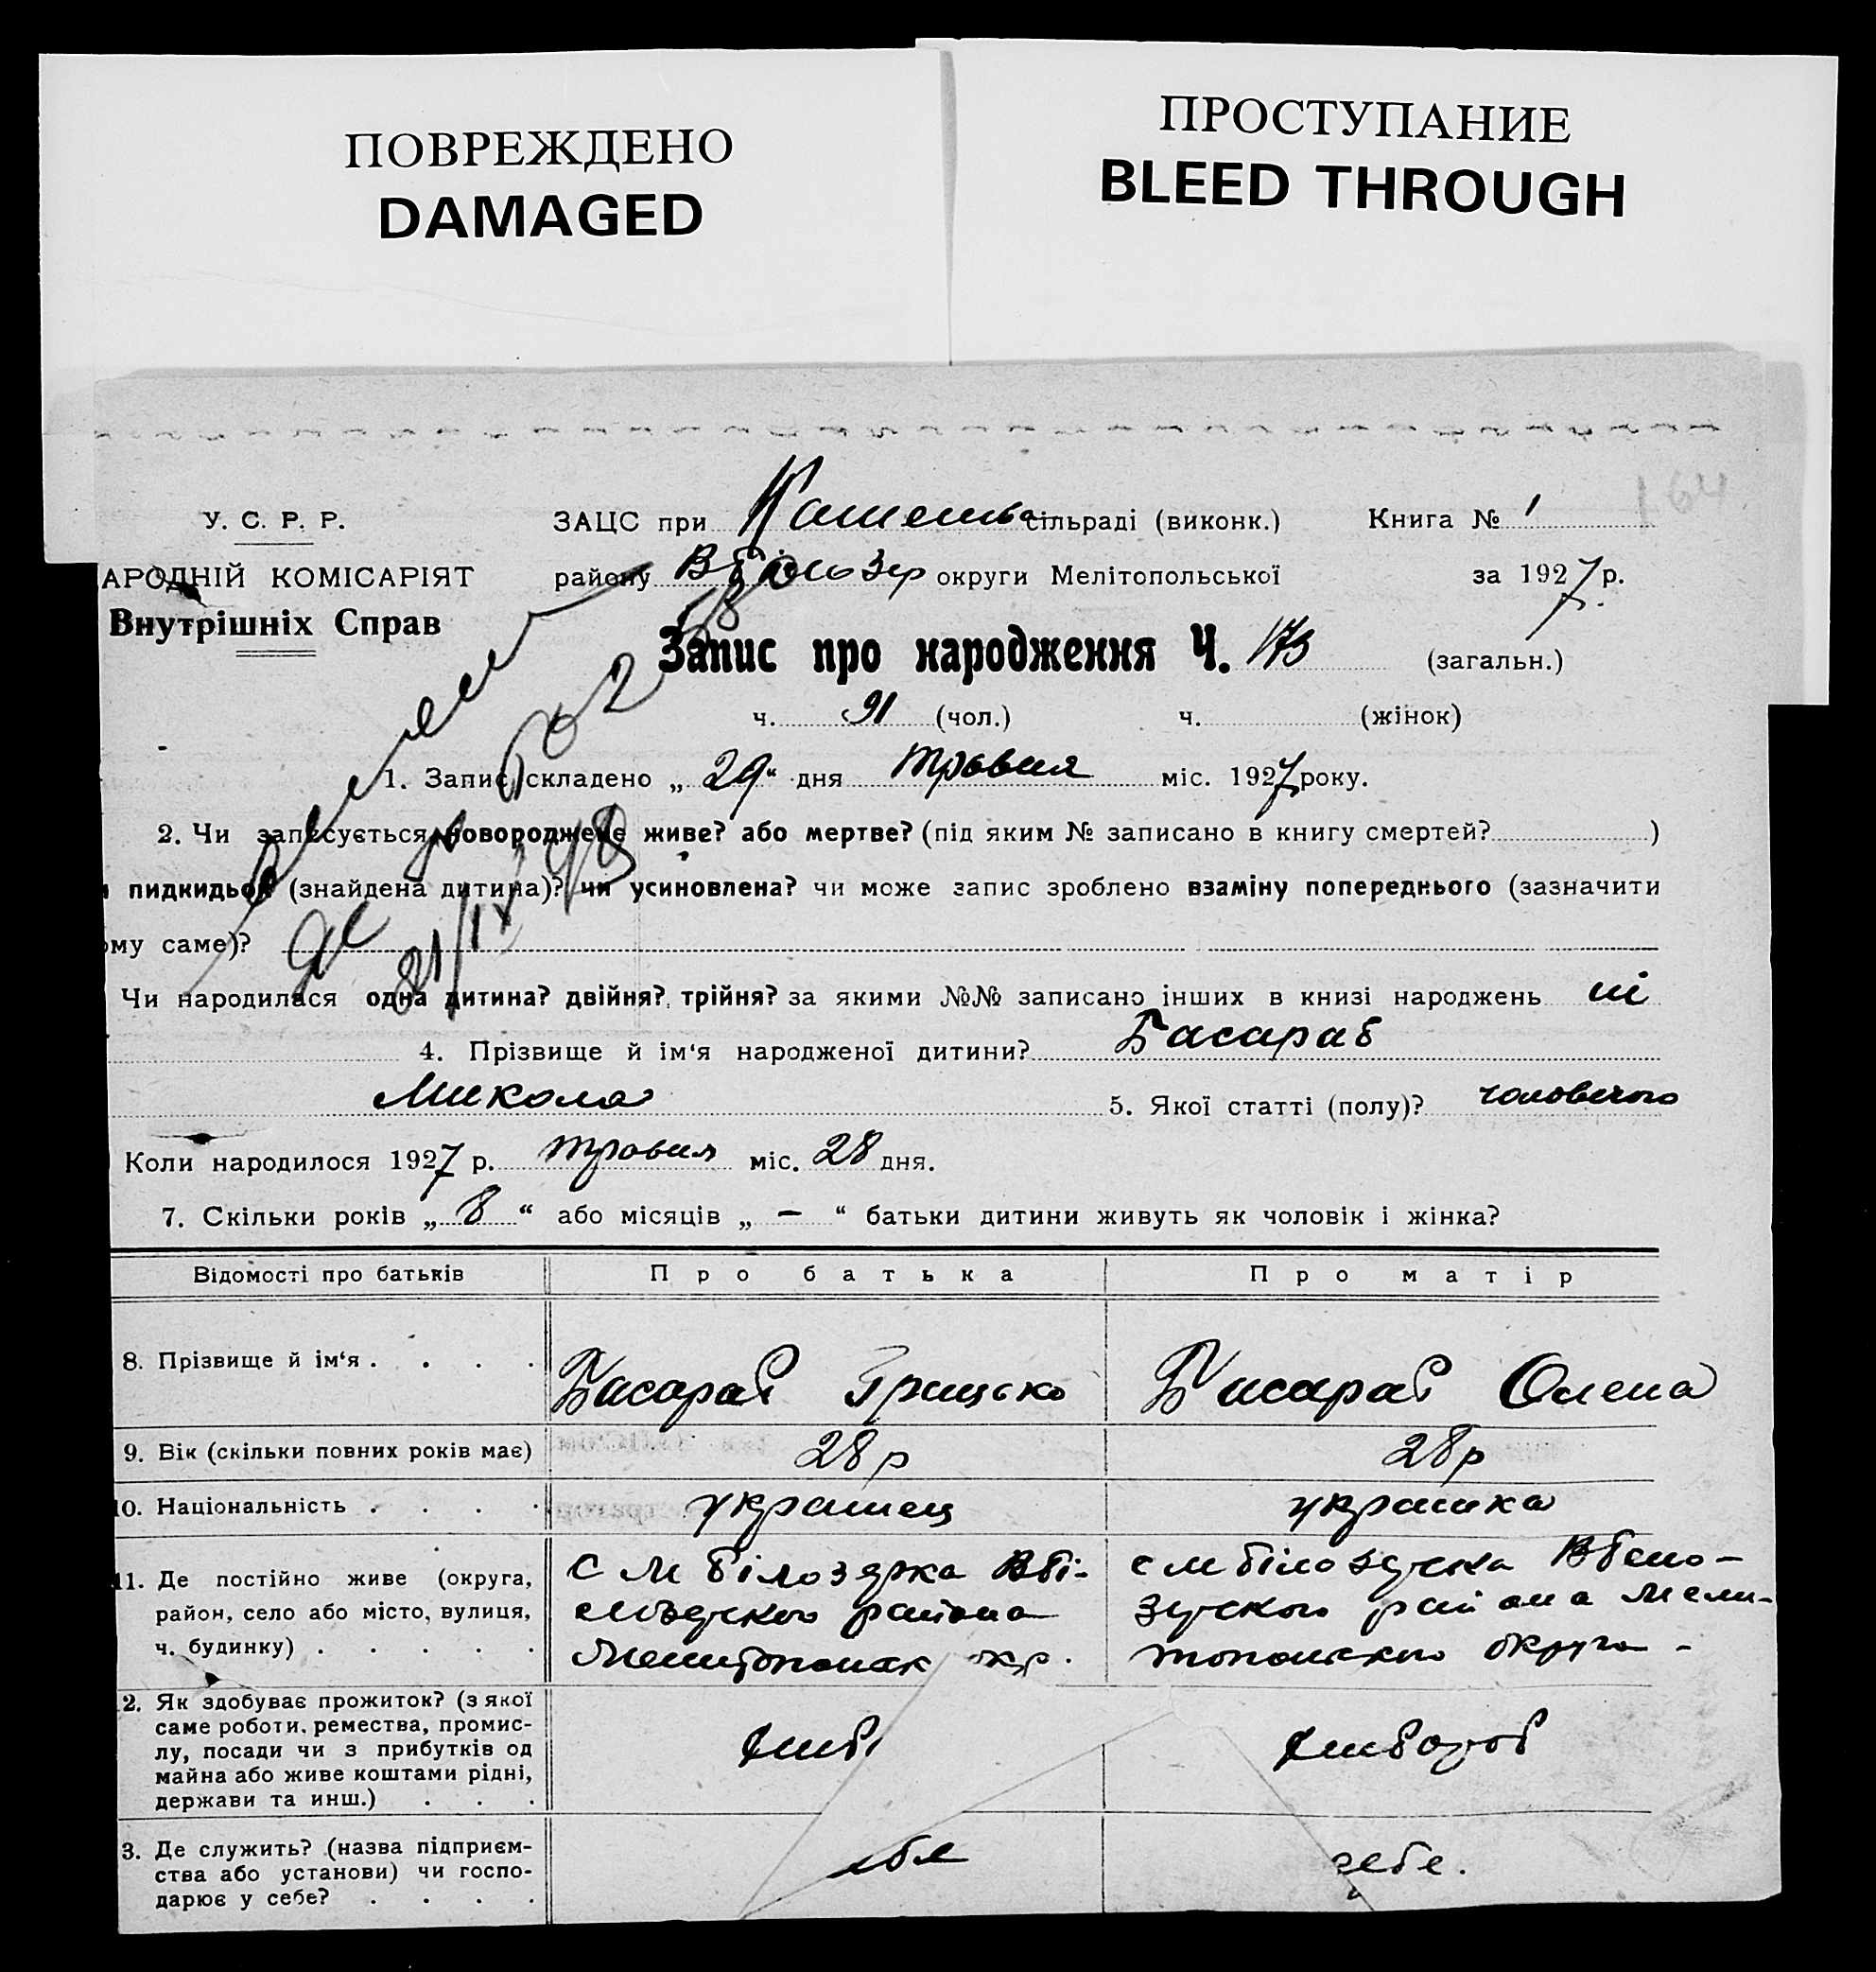 ПОВРЕЖДЕНО
DAMAGED
ПРОСТУПАНИЕ
BLEED THROUGH
164
У. С. Р. Р.
АРОДНІЙ КОМІСАРІЯТ
Внутрішніх Справ
ЗАЦС при сільраді (виконк.) Книга № 1
району В Білозер округи Мелітопольської за 1927 р.
Запис про народження Ч. 173 (загальн.)
ч. 91 (чол.) ч. (жінок)
1. Запис складено „ 29 “ дня травня міс. 1927 року.
2. Чи записується новороджене живе? або мертве? (під яким № записано в книгу смертей? )
пидкидьок (знайдена дитина)? чи усиновлена? чи може запис зроблено взаміну попереднього (зазначити
ому саме)?
Чи народилася одна дитина? двійня? трійня? за якими №№ записано інших в книзі народжень ні
4. Прізвище й ім‘я народженої дитини? Басараб
Микола 5. Якої статті (полу)? чоловічого
Коли народилося 1927 р. травня міс. 28 дня.
7. Скільки років „ 8 “ або місяців „ — “ батьки дитини живуть як чоловік і жінка?
Відомості про батьків Про батька Про матір
8. Прізвище й ім‘я . . . . Басараб Грицько Басараб Олена
9. Вік (скільки повних років має) 28 р 28 р
10. Національність . . . . украинец украинка
11. Де постійно живе (округа, район, село або місто, вулиця, ч. будинку) . . . . .
С М Білозярка В Бі-
района
окр.
с м білозерка В Бело-
зерского района Мели-
топольского округа -
2. Як здобуває прожиток? (з якої
саме роботи, ремества, промис-
лу, посади чи з прибутків од
майна або живе коштами рідні,
держави та инш.) . . .
хліб хлібороб
3. Де служить? (назва підприєм-
ства або установи) чи госпо-
дарює у себе? . . . .
ебе себе.